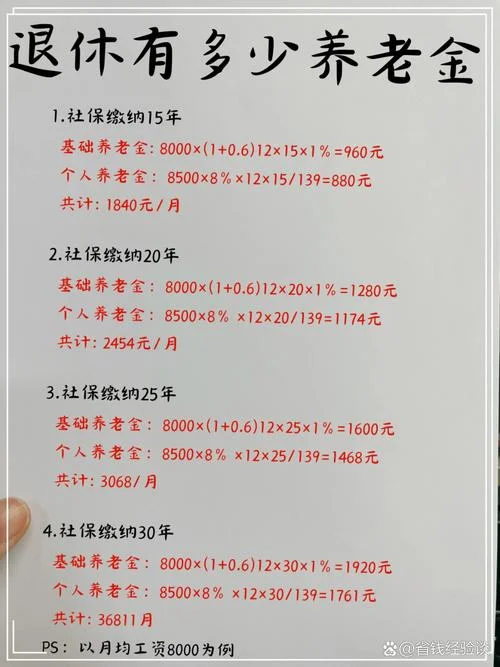 退休有多少养老金
1.社保缴纳15年
基础养老金: 8000×(1+0.6)12×15×1%=960元
个人养老金: 8500×8% ×12×15/139=880元
共计: 1840元/月
2.社保缴纳20年
基础养老金: 8000×(1+0.6)12×20×1%=1280元
个人养老金: 8500×8% ×12×20/139=1174元
共计: 2454元/月
3.社保缴纳25年
基础养老金: 8000×(1+0.6)12×25×1%=1600元
个人养老金: 8500×8% ×12×25/139=1468元
共计: 3068/月
4.社保缴纳30年
基础养老金: 8000×(1+0.6)12×30×1%=1920元
个人养老金: 8500×8% ×12×30/139=1761元
共计: 36811月
PS: 以月均工资8000为例
@省钱经验谈